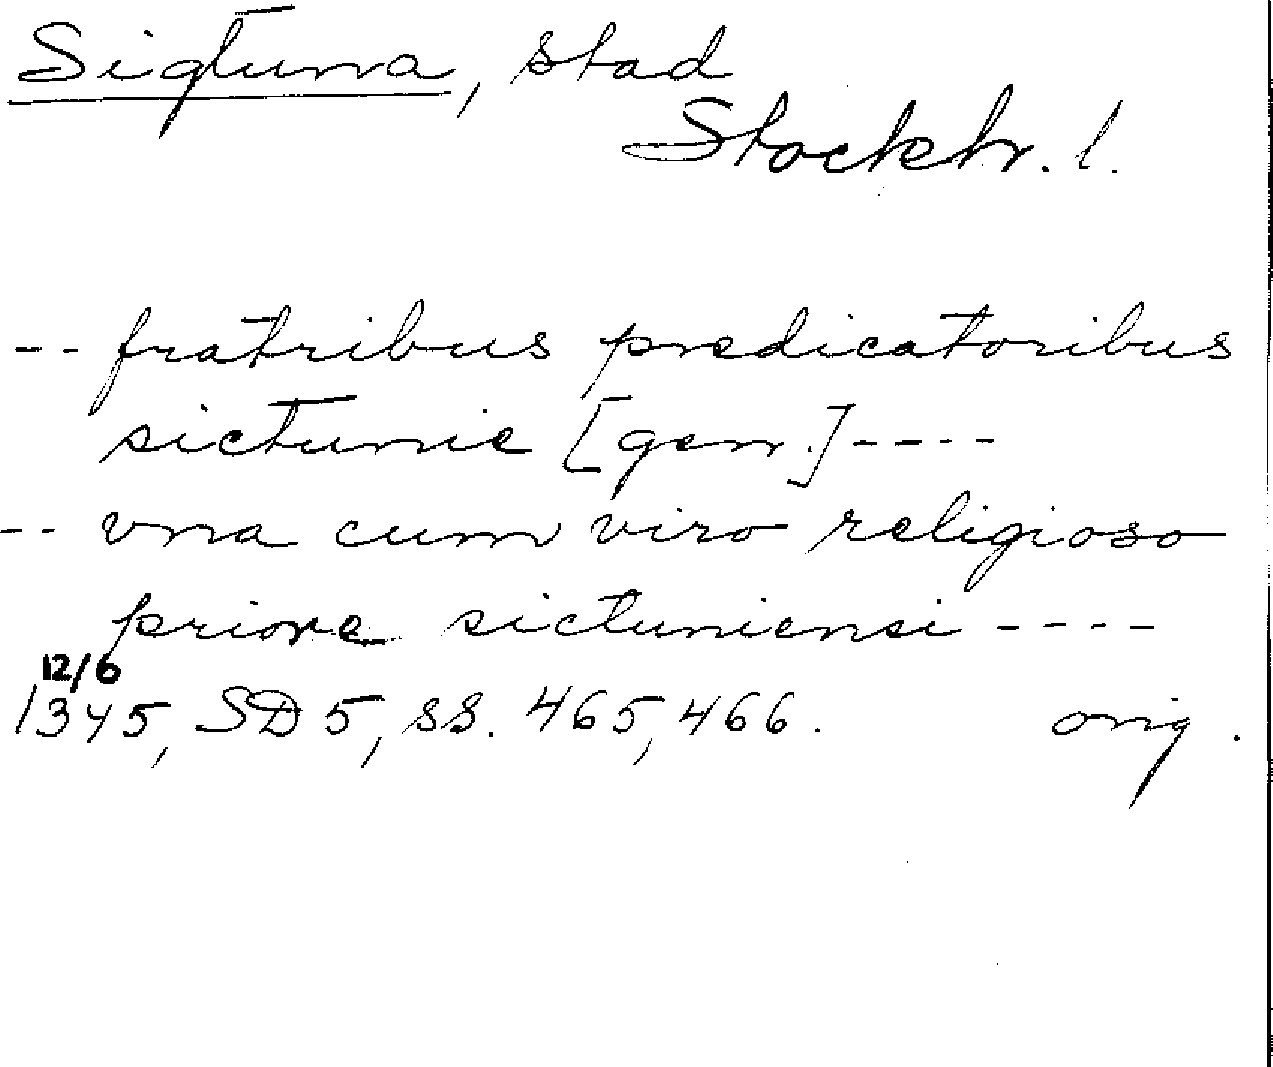 Sigtuna, stad
Stockh. l.
-- fratribus predicatoribus
sictunie [gen.]----
-- vna cum viro religioso
priore sictuniensi ----
12/6
1345, SD 5, ss. 465, 466. orig.